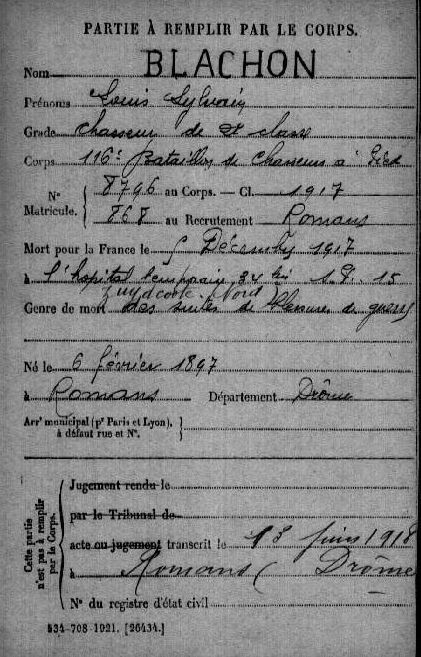 PARTIE À REMPLIR PAR LE CORPS.
Nom BLACHON
Prénoms Louis Sylvain
Grade chasseur de 2e classe
Corps 116e Bataillon de Chasseurs à Pied
N° Matricule. { 8796 au Corps. — Cl. 1917
868 au Recrutement Romans
Mort pour la France le 5 Décembre 1917
à l'hôpital temporaire 34 1. S. 15
Zuydcoote Nord
Genre de mort des suites de blessures de guerre
Né le 6 février 1897
à Romans Département Drôme
Arrt municipal (pr Paris et Lyon), à défaut rue et N°. }
Cette partie n'est pas à remplir par le Corps. {
Jugement rendu le
par le Tribunal de
acte ou jugement transcrit le 13 juin 1918
à Romans (Drôme
N° du registre d'état civil
534-708-1921. [26434.]